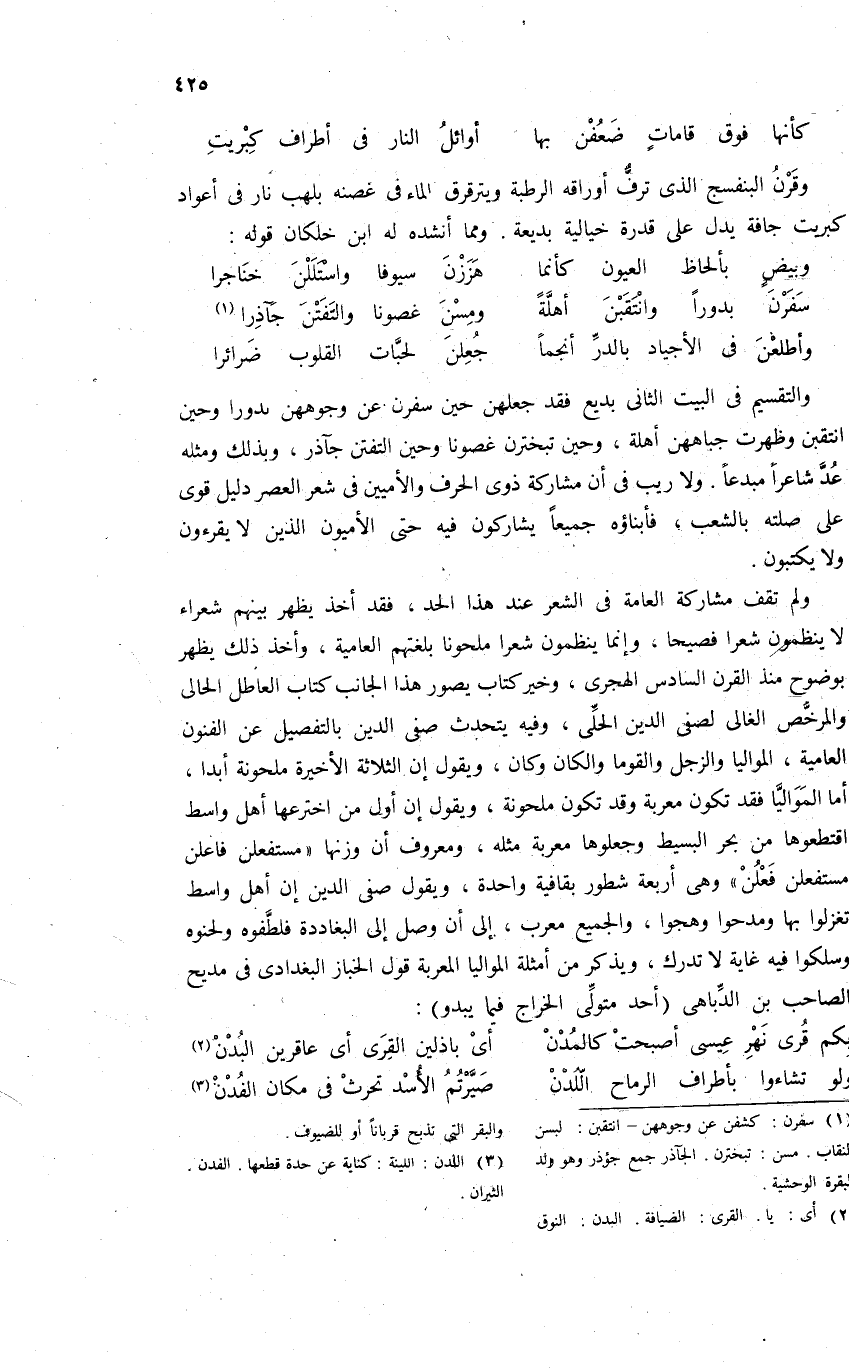 ٤٢٥
كأنها فوق قاماتٍ ضَعُفْن بها أوائلُ النار فى أطراف كِبْريتِ
وقَرْنُ البنفسج الذى ترفُّ أوراقه الرطبة ويترقرق الماء فى غصنه بلهب نار فى أعواد
كبريت جافة يدل على قدرة خيالية بديعة . ومما أنشده له ابن خلكان قوله :
وبيضٍ بألحاظ العيون كأنما هَزَزْنَ سيوفا واسْتَلَلْنَ خنَاجرا
سَفَرْنَ بدوراً وانْتَقَبْنَ أهلَّةً ومِسْنَ غصونا والتَفَتْنَ جَآذِرا (١)
وأطلعْنَ فى الأجياد بالدرِّ أنجماً جُعِلنَ لحبَّات القلوب ضَرائرا
والتقسيم فى البيت الثانى بديع فقد جعلهن حين سفرن عن وجوههن بدورا وحين
انتقبن وظهرت جباههن أهلة ، وحين تبخترن غصونا وحين التفتن جآذر ، وبذلك ومثله
عُدَّ شاعراً مبدعاً . ولا ريب فى أن مشاركة ذوى الحرف والأميين فى شعر العصر دليل قوى
على صلته بالشعب ، فأبناؤه جميعاً يشاركون فيه حتى الأميون الذين لا يقرءون
ولا يكتبون .
ولم تقف مشاركة العامة فى الشعر عند هذا الحد ، فقد أخذ يظهر بينهم شعراء
لا ينظمون شعرا فصيحا ، وإنما ينظمون شعرا ملحونا بلغتهم العامية ، وأخذ ذلك يظهر
بوضوح منذ القرن السادس الهجرى ، وخير كتاب يصور هذا الجانب كتاب العاطل الحالى
والمرخَّص الغالى لصفى الدين الحلِّى ، وفيه يتحدث صفى الدين بالتفصيل عن الفنون
العامية ، المواليا والزجل والقوما والكان وكان ، ويقول إن الثلاثة الأخيرة ملحونة أبدا ،
أما المَوَاليَّا فقد تكون معربة وقد تكون ملحونة ، ويقول إن أول من اخترعها أهل واسط
اقتطعوها من بحر البسيط وجعلوها معربة مثله ، ومعروف أن وزنها «مستفعلن فاعلن
مستفعلن فَعْلُنْ» وهى أربعة شطور بقافية واحدة ، ويقول صفى الدين إن أهل واسط
تغزلوا بها ومدحوا وهجوا ، والجميع معرب ، إلى أن وصل إلى البغاددة فلطَّفوه ولحنوه
وسلكوا فيه غاية لا تدرك ، ويذكر من أمثلة المواليا المعربة قول الخباز البغدادى فى مديح
الصاحب بن الدِّباهى (أحد متولِّى الخراج فيما يبدو) :
بِكم قُرى نَهْرِ عِيسى أصبحتْ كالمُدْنْ أىْ باذلين القِرَى أى عاقرين البُدْنْ (٢)
ولو تشاءوا بأطراف الرماح الّلُدْنْ صَيَّرْتُمُ الأُسْد تحرثْ فى مكان الفُدْنْ (٣)
(١) سفرن : كشفن عن وجوههن – انتقبن : لبسن
النقاب . مسن : تبخترن . الجآذر جمع جؤذر وهو ولد
البقرة الوحشية .
٢) أى : يا . القرى : الضيافة . البدن : النوق
والبقر التى تذبح قرباناً أو للضيوف .
(٣) اللدن : اللينة : كناية عن حدة قطعها . الفدن .
الثيران .